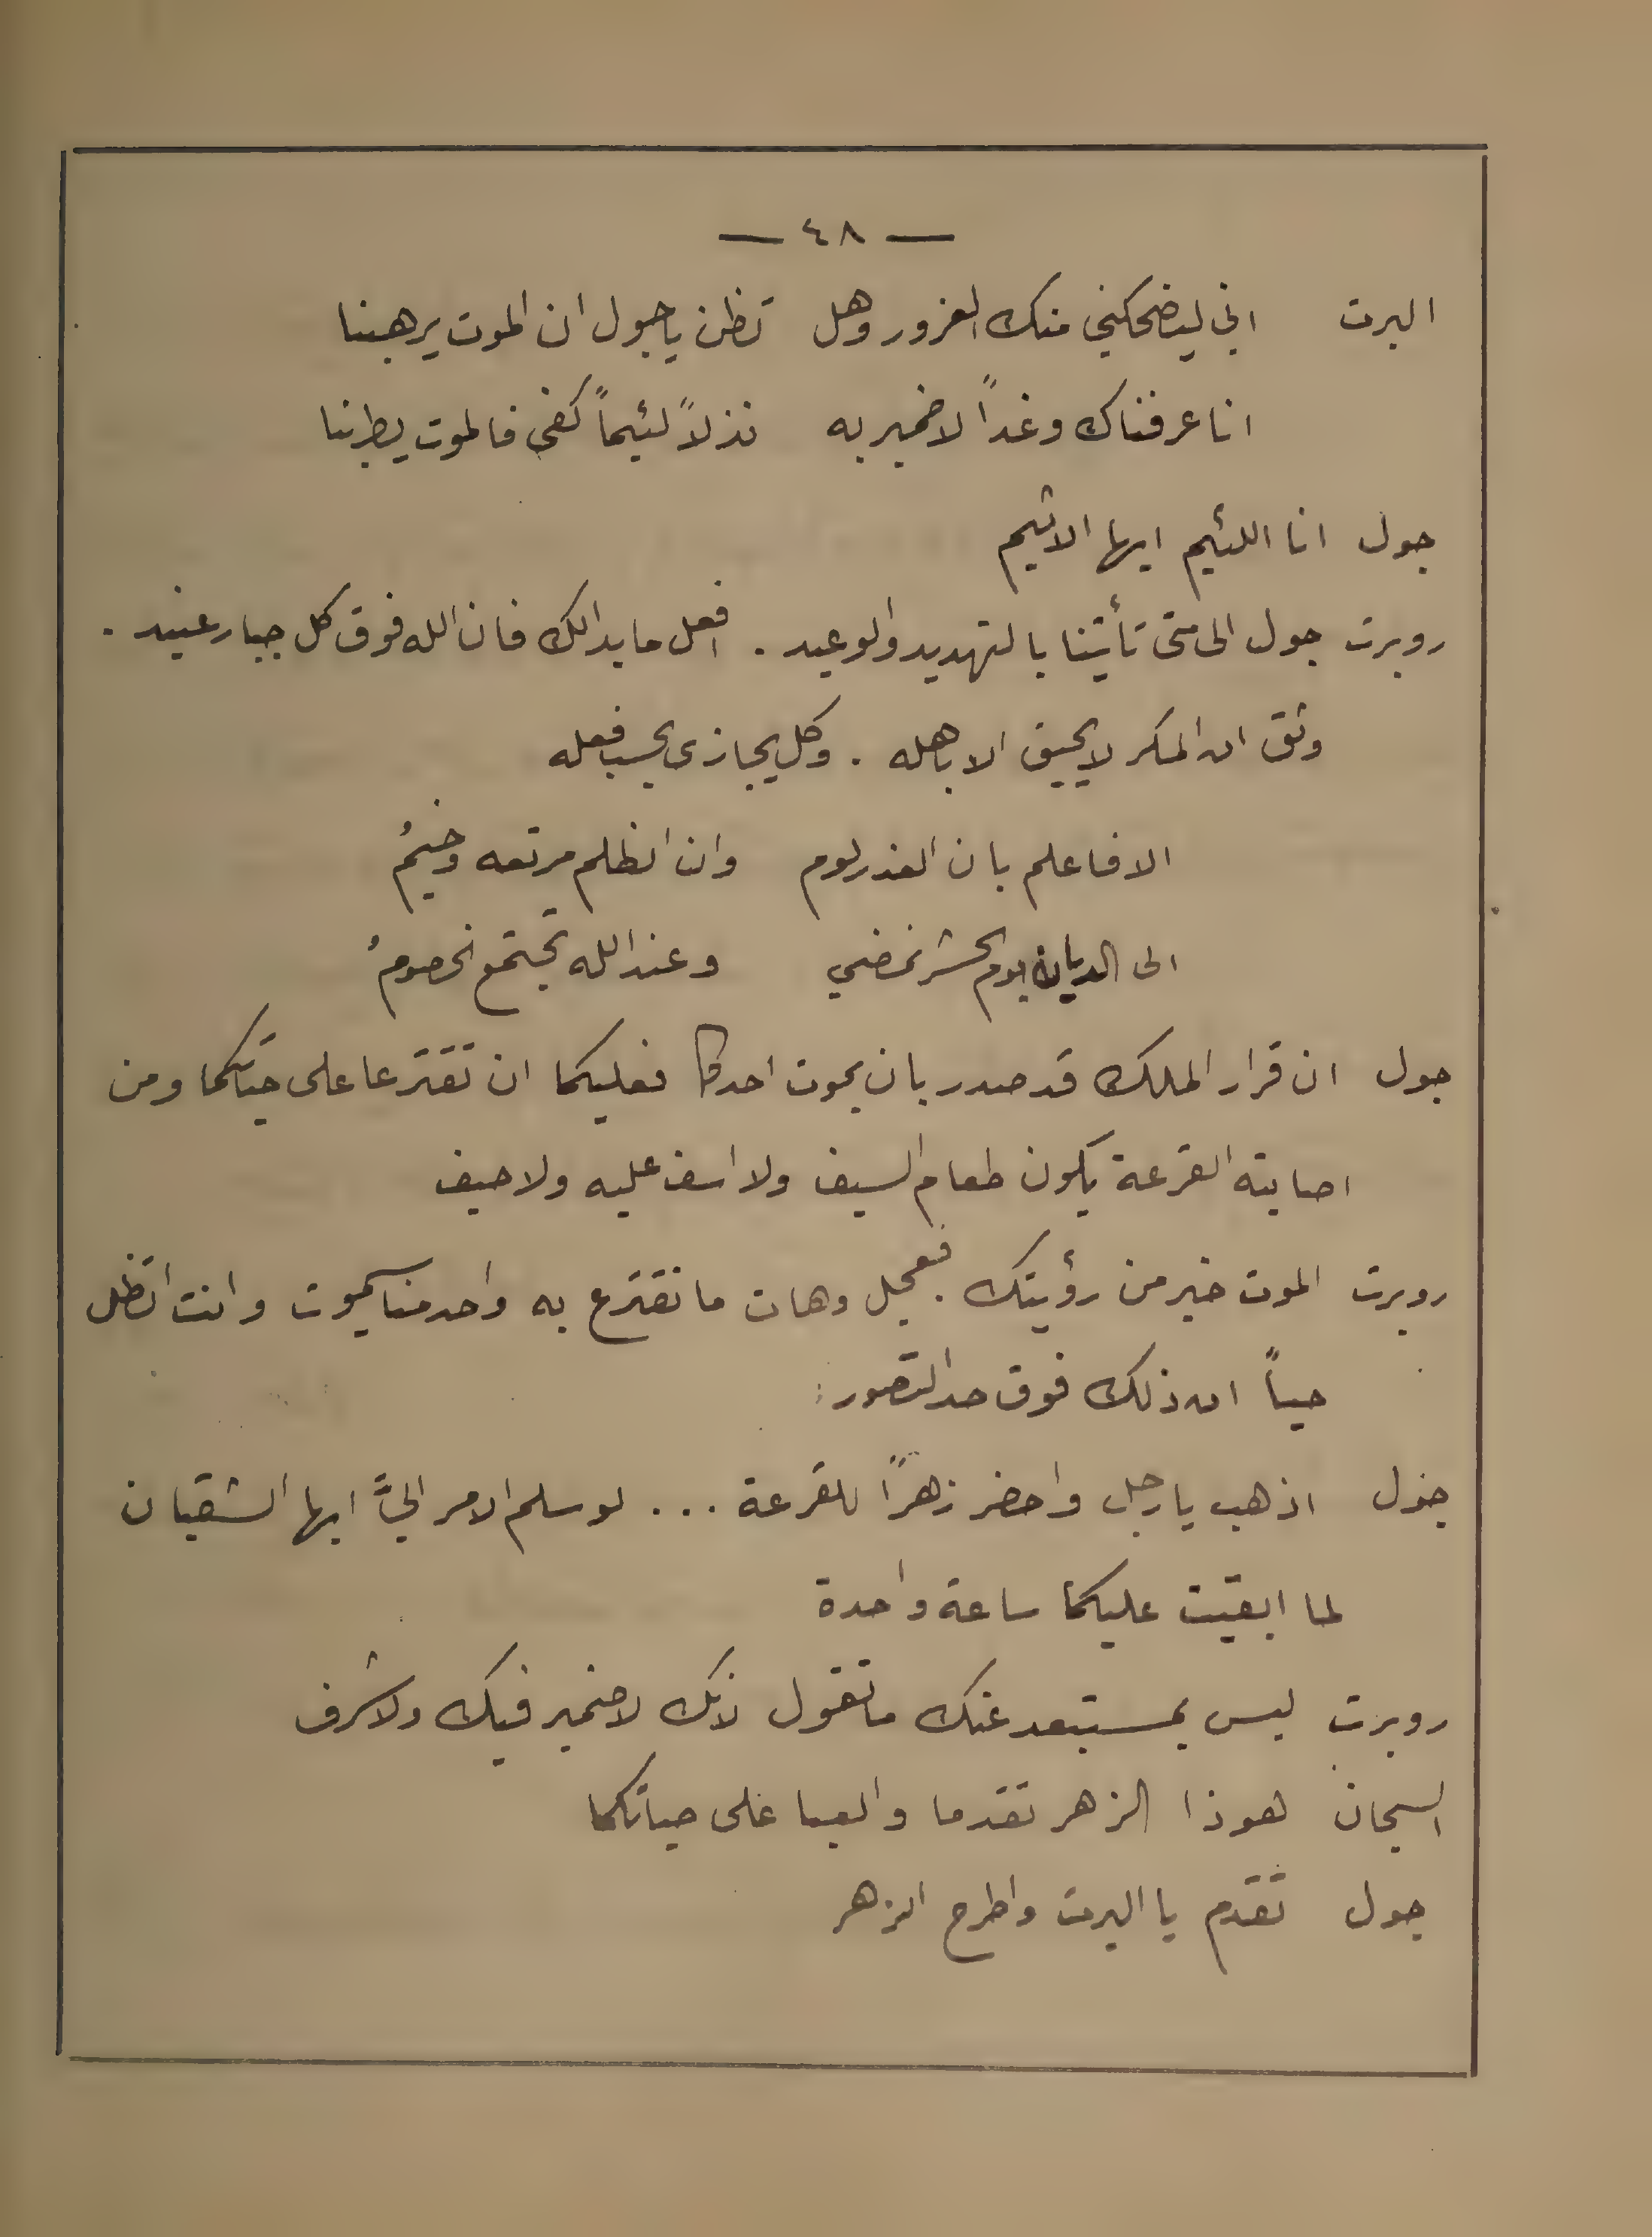 — ٤٨ —
البرت اني ليضحكني منك الغرور وهل تظن يا جول ان الموت يرهبنا
انا عرفناك وغداً لا ضمير به نذلاً لئيماً كفى فالموت يطربنا
جول انا اللئيم ايها الاثيم
روبرت جول الى متى تأتينا بالتهديد والوعيد . افعل ما بدالك فان الله فوق كل جبار عنيد .
وثق ان المكر لا يحيق الا باهله . وكل يجازى بحسب فعله
الا فاعلم بان الغدر لوم وان الظلم مرتعه وخيمُ
الى الديان يوم الحشر نمضي وعند الله تجتمع الخصومُ
جول ان قرار الملك قد صدر بان يموت احدكما فعليكما ان تقترعا على حياتكما ومن
اصابته القرعة يكون طعام السيف ولا اسف عليه ولا حيف
روبرت الموت خير من رؤيتك . فعجل وهات ما نقترع به واحد منا سيموت وانت تظل
حياً ان ذلك فوق حد التصور :
جول اذهب يا رجل واحضر زهراً للقرعة ... لو سلم الامر اليَّ ايها الشقيان
لما ابقيت عليكما ساعة واحدة
روبرت ليس بمستبعد عنك ما تقول لانك لا ضمير فيك ولا شرف
السجان هوذا الزهر تقدما والعبا على حياتكما
جول تقدم يا البرت واطرح الزهر